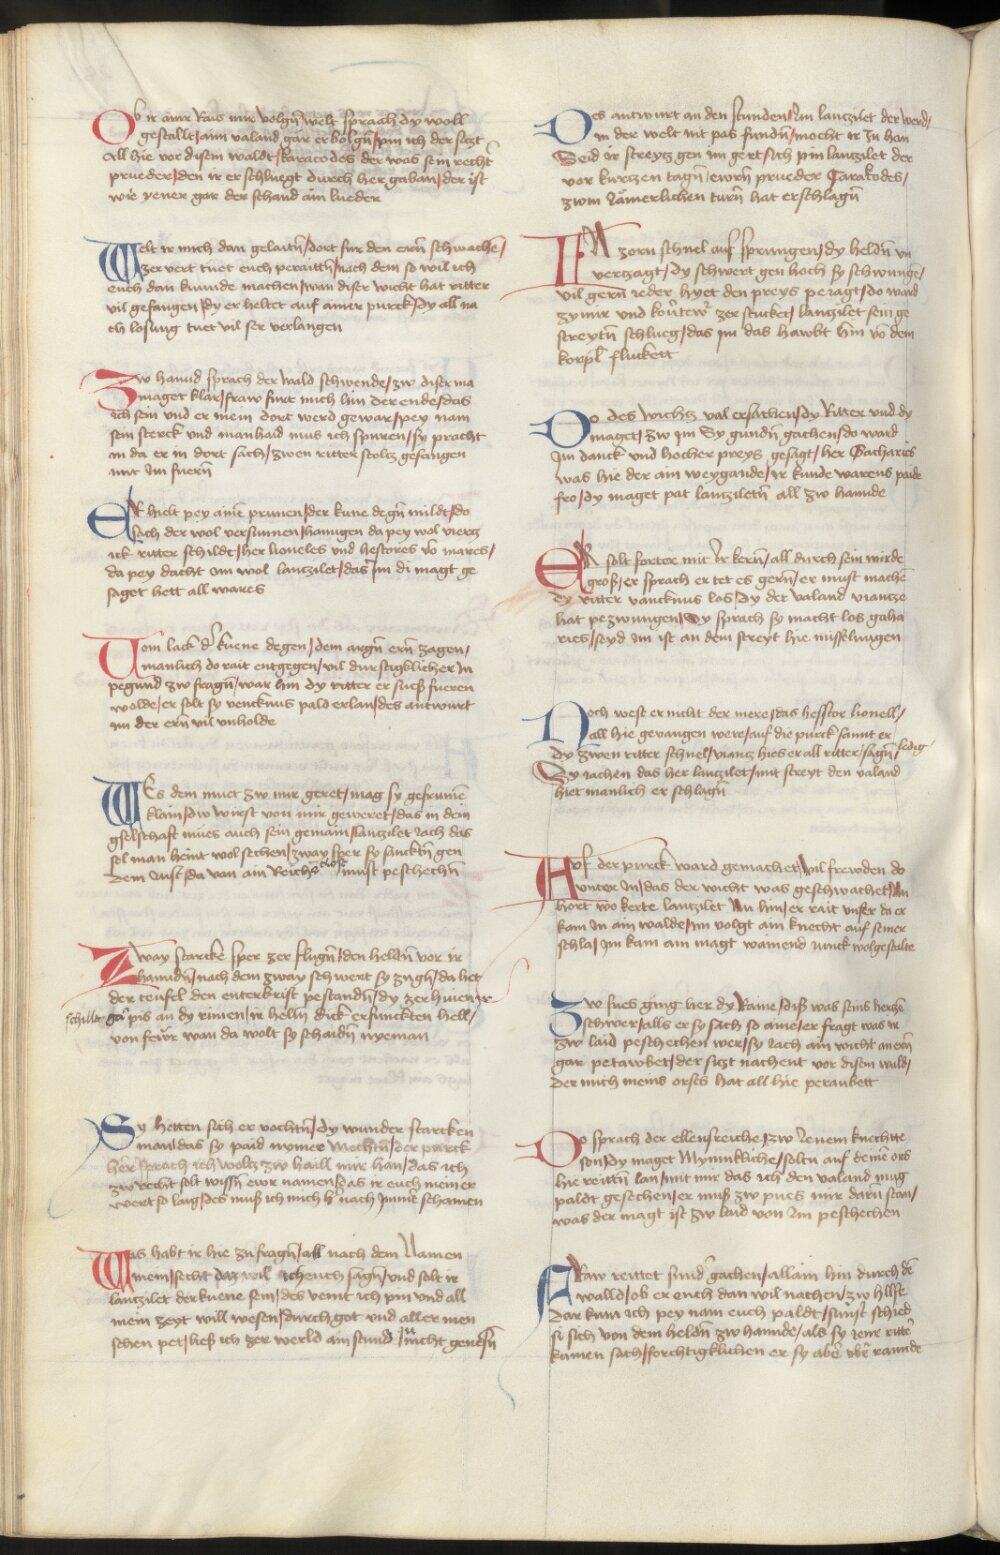 Ob ir ainr Rais mir volgñ welt sprach dy woll
gestallt / aim valand gar erbolgñ / pin ich der sizt
All hie vor disem waldt / karacodes der was sein recht
prueder / den ir er schluegt durch her gaban / der ist
wie yener gar der schand ain lueder
Welt ir mich dan gelaitñ / dort fur den erñ schwachē /
zer vert tuet euch peraittñ / nach dem so wil ich
euch dan kunde machen / wan diser wicht hat ritter
vil gefangen / dy er heltet auf ainer purck / dy all na
ch losung tuet vil ser verlangen
Zw hannd sprach der wald schwende / zw diser ma
maget klar / fraw furt mich hin der ende / das
ich sein und er mein dort werd gewar / pey nam
sein sterck und manhaid mus ich spuren / sy pracht
in da er in dort sach / zwen ritter stoltz gefangen
mit Im fuerñ
Er hielt pey aine prunen / der kune degñ mildt / do
sach der wol versunnen / hanngen da pey wol vierz
ick ritter schildt / her lioneles und hestores vō mares /
da pey dacht Im wol lantzilet / das im di magt ge
saget hett all wares
Vom lack dr kuene degen / dem argñ erñ zagen /
manlich do rait entgegen / vil durstigklicher In
pegund zw fragñ / war hin dy ritter er sueß fueren
wolde / er solt sy vencknus pald erlan / des antwurt
im der erñ vil unholde
Wes dem muet zw mir geret / mag sy gefrumē
klain / dw wirst von mir geweret / das in dem
gselschaft mues auch sein gemain / lantzilet sach das
sol man heint wol sechen / zway sper sy sancktñ gen
dem Just / da von ain Reiche tiost must peschechñ
Zway starcke sper zer flugñ / den heldñ vor ir
hanndñ / nach dem zway schwert sy zugñ / da het
der teufel den enterkrist pestandñ / dy zer hiwen ir
schilltte gar pis an dy rimen / ir hellm dick erfunckten hell /
von fewr wan da wolt sy schaidñ nyeman
Sy hetten sich er vochtñ / dy wunder starcken
man / das sy paid nymer mochtñ / der purck
her sprach ich woltz zw haill mir han / das ich
zw recht solt wissñ ewr namen / das ir euch mein er
wert so lang / des muß ich mich h nach imer schamen
Was habt ir hie zu fragñ / all nach dem Namen
mein / secht daz wil ich euch sagñ / und solt ir
lantzilet der kuene sein / des vemt ich pin und all
mein zeyt will wesen / durch got und aller men
schen pet / ließ ich zer werld ain stund ew nicht genesñ
Des antwurt an den stunden / Im lantzilet der werd /
in der welt nit pas fundñ / mocht ir In han
Seid ir streytz gen im gert / sich pin lantzilet der
vor kurtzen tagñ / ewrñ prueder Carakodes /
zwm Jamerlichen turñ hat erschlagñ
IN zorn schnel auf sprungen / dy heldñ un
verzagt / dy schwert gen hoch sy schwunge /
vil gern ieder hyet den preys pejagt / do ward
zymir und kouertewr zer stucket / lantzilet sein ge
streytñ schlueg / das im das hawbt hin vō dem
korpl fluckett
Do des wichtz val ersachen / dy Ritter und dy
maget / zw im Sy gundñ gachen / do ward
Im danck und hocher preys gesagt / her Gacharies
was hie der ain weygande / ir kunde warens paide
fro / dy maget pat lantziletñ all zw hannde
Er solt forter mit Ir kerñ / all durch sein wirde
groß / er sprach er tet es gerñ / er must machē
dy ritter vancknus los / dy der valand viantze
hat pezwungen / Sy sprach sy macht los gaha
ries / seyd im ist an dem streyt hie misselungen
Noch west er nicht der mere / das hestor lionell /
all hie gevangen were / auf die purck sannt er
dy zwen ritter schnel / viantz hies er all ritter / sagñ / ledig
Sy jachen das her lantzilet / mit streyt den valand
hiet manlich er schlagñ
Auf der purck ward gemachet / vil frewden do
unter In / das der wicht was geschwachet / Nu
hort wo kerte lantzilet Nu hin / er rait unser da er
kam In ain walde / im volgt ain knecht auf seiner
schla / Im kam ain magt wainend iunck wolgestalte
Zw fues ging her dy Raine / diß was seins herczē
schwer / alls er sy sach so aine / er fragt was ir
zw laid peschechen wer / sy jach ain wicht mein
gar petawbet / der sizt nachent vor disem wald /
der mich meins orses hat all hie peraubett
Do sprach der ellensreiche / zw jenem knechte
son / dy maget Mynnikliche / soltu auf deine ors
hie reittñ lan / mit mir das ich den valand mug
paldt gesechen / er muß zw pues mir darñ stan /
was der magt ist zw laid von Im peschechen
Fraw reittet sund gachen / allain hin durch dē
walld / ob er euch dan wil nachen / zw hilff
dar kum ich pey nam euch paldt / sunst schied
si sich von dem heldñ zw hannde / als sy iene rittē
kumen sach / forchtigklichen er sy aber vber rannde